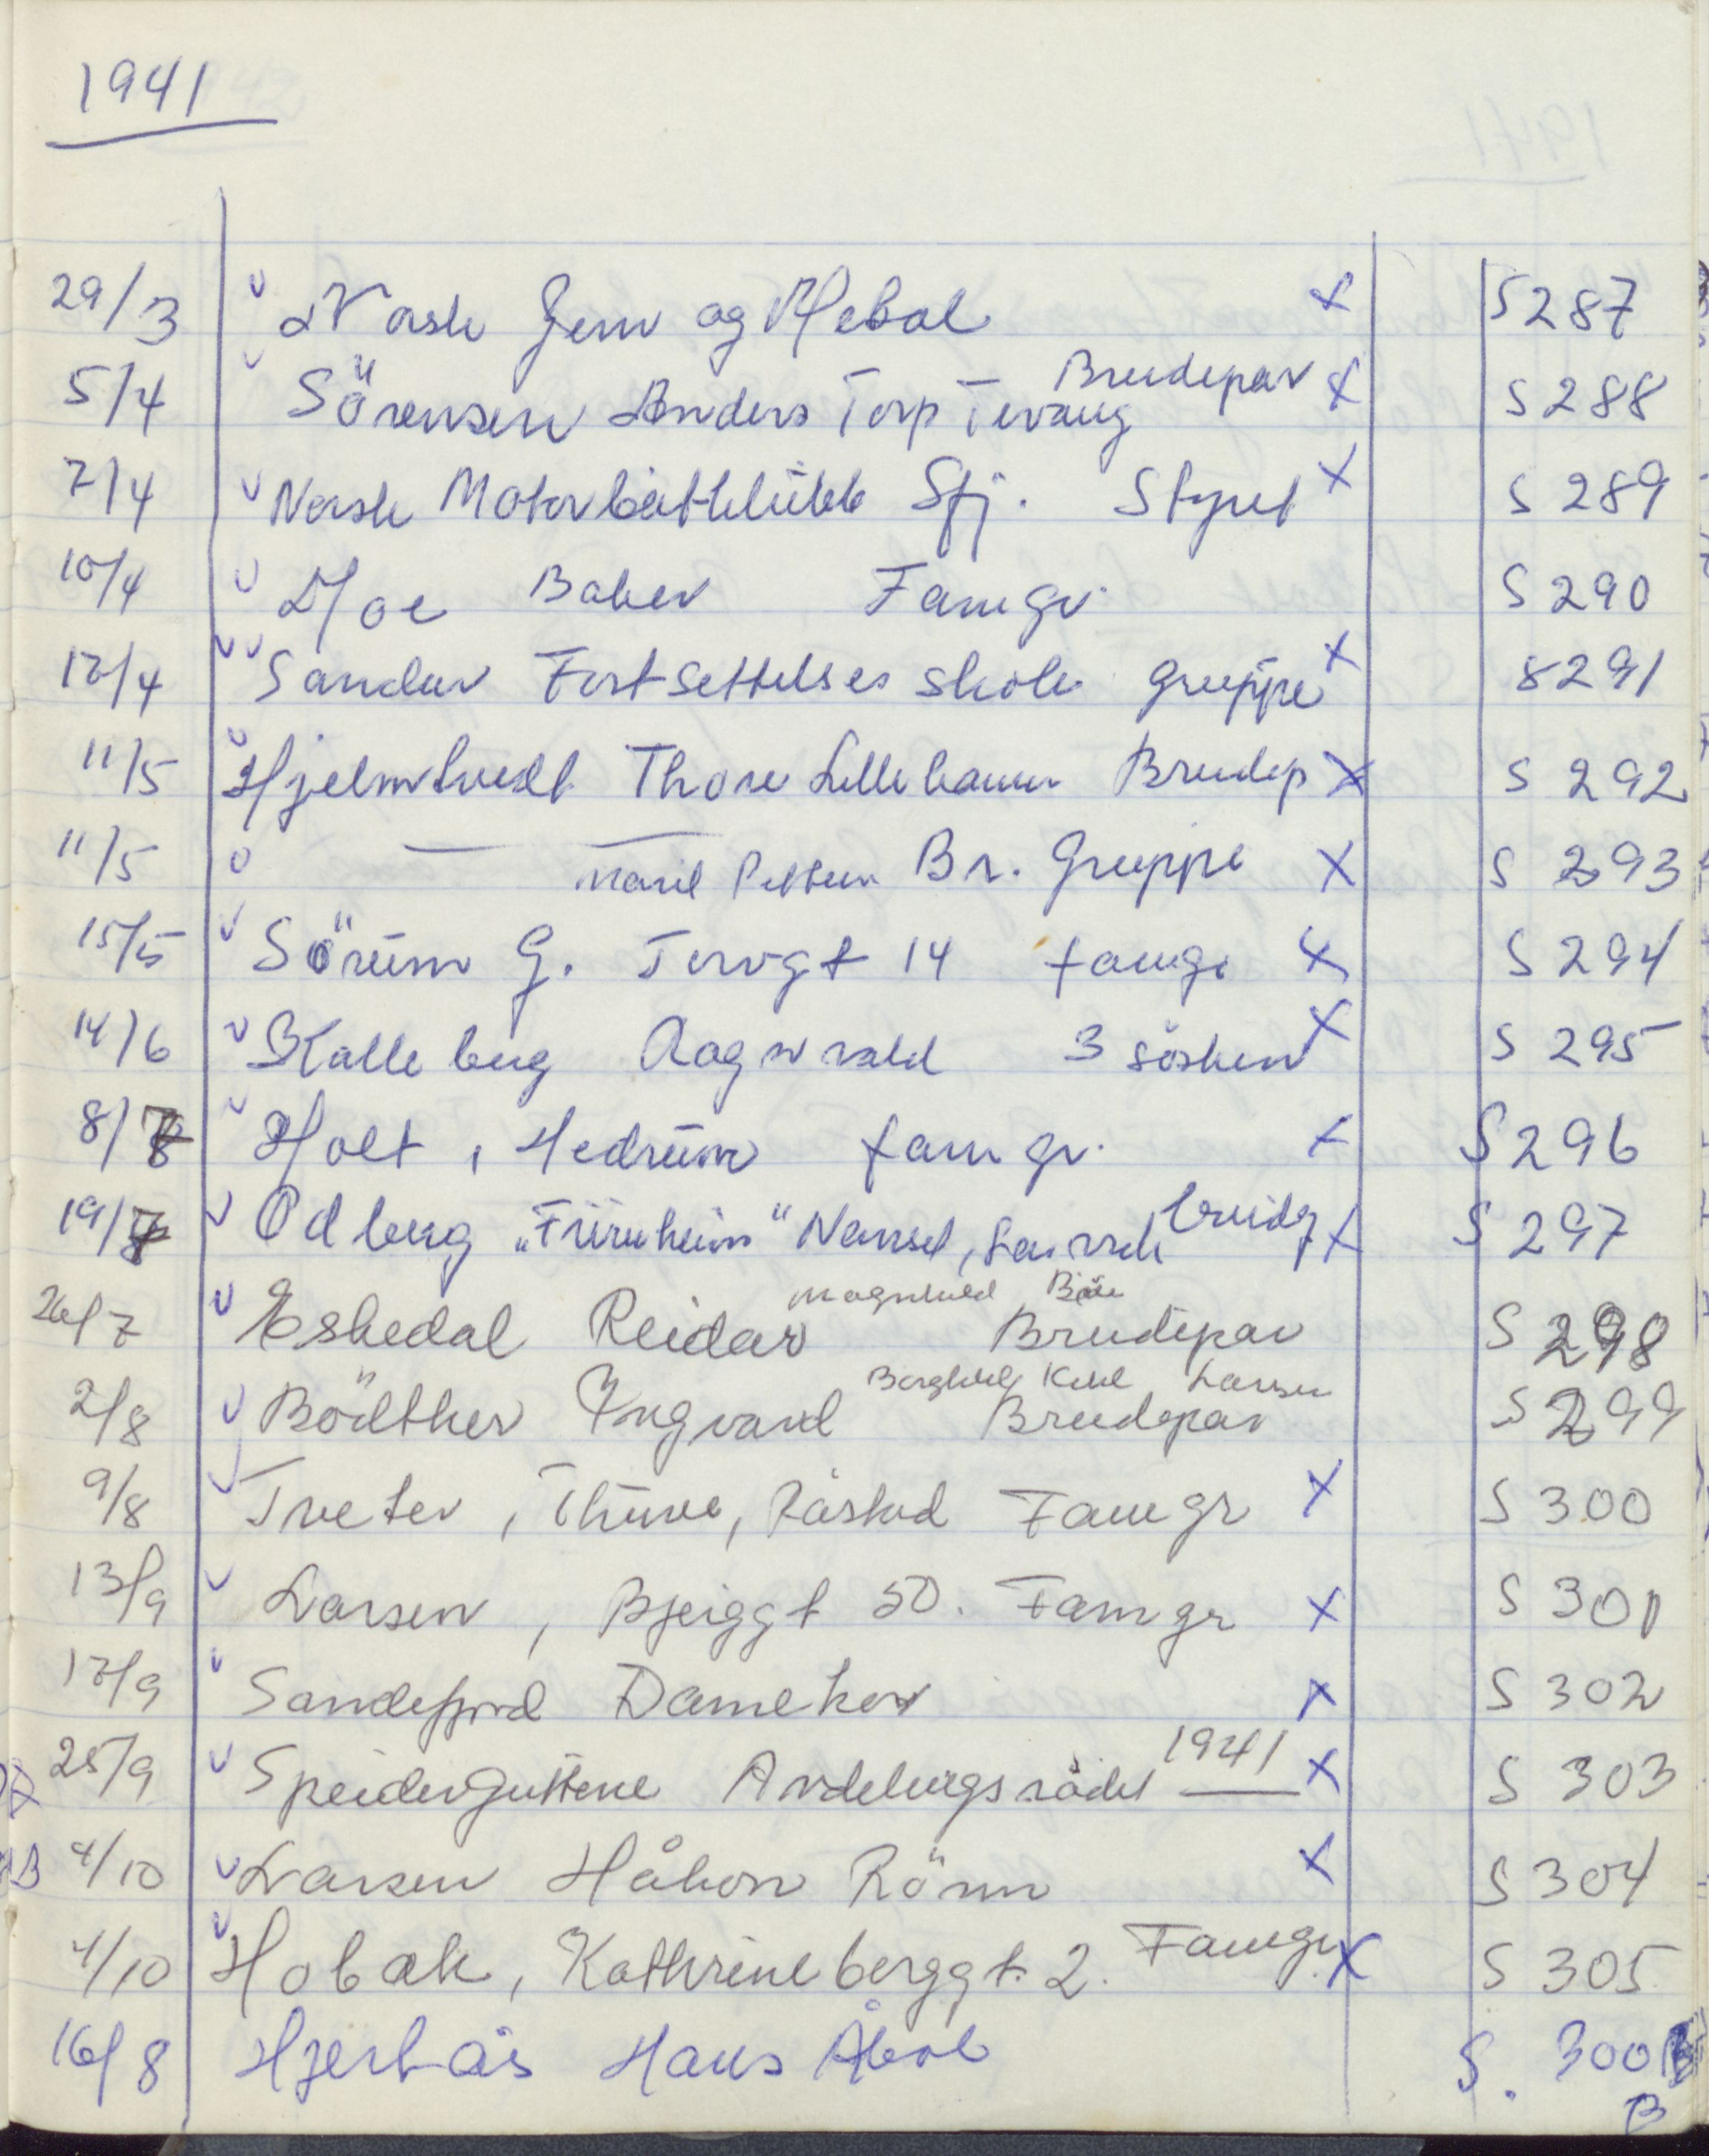 1941
29/3 Norsk Jern og Metal x S 287
5/4 Sörensen Anders Torp Tevang Brudepar x S 288
7/4 Norsk Motorbåtklubb Sfj. Styret x S 289
10/4 Moe Baker Famgr. S 290
12/4 Sandar Fortsettelses skole gruppe x S 291
11/5 Hjelmtvedt Thore Lillehamm Brudep x S 292
11/5 — — Br. Gruppe x S 293
15/5 Sörum G. Torvgt 14 famgr x S 294
14/6 Kalleberg Ragnvald 3 sösken x S 295
8/7 Holt, Hedrum famgr. x S 296
19/7 Odberg „Furuheim" Nanset, Larvik brudep x S 297
26/7 Eskedal Reidar Magnhild Brudepar S 298
2/8 Bödtker Ingvard Borghild Larsen Brudepar S 299
9/8 Tveter, Thuve, Råstad Famgr x S 300
13/9 Larsen, Bjerggt 50. Famgr x S 301
17/9 Sandefjord Damekor x S 302
25/9 Speiderguttene Avdelingsrådet 1941 x S 303
4/10 Larsen Håkon Rönn x S 304
4/10 Hobæk, Kathrineberggt. 2. Famgr. x S 305
16/8 Hjertås Hans S. 300 B
B